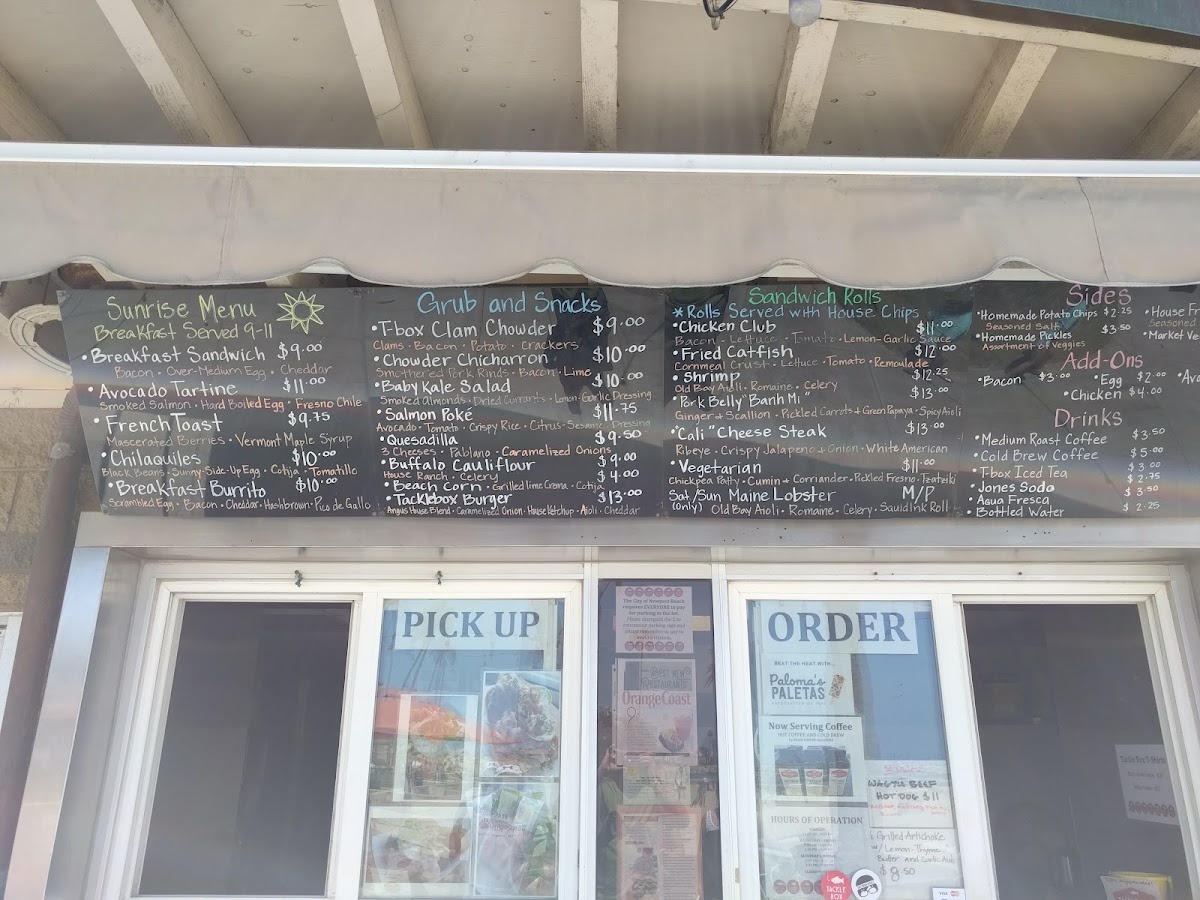 Sunrise Menu
Breakfast Served 9-11
• Breakfast Sandwich $9.00
Bacon • Over-Medium Egg • Cheddar
• Avocado Tartine $11.00
Smoked Salmon • Hard Boiled Egg • Fresno Chile
• French Toast $9.75
Mascerated Berries • Vermont Maple Syrup
• Chilaquiles $10.00
Black Beans • Sunny-Side-Up Egg • Cotija • Tomatillo
• Breakfast Burrito $10.00
Scrambled Egg • Bacon • Cheddar • Hashbrown • Pico de Gallo
Grub and Snacks
• T-box Clam Chowder $9.00
Clams • Bacon • Potato • Crackers
• Chowder Chicharron $10.00
Smothered Pork Rinds • Bacon • Lime
• Baby Kale Salad $10.00
Smoked Almonds • Dried Currants • Lemon-Garlic Dressing
• Salmon Poké $11.75
Avocado • Tomato • Crispy Rice • Citrus-Sesame Dressing
• Quesadilla $9.50
3 Cheeses • Pablano • Caramelized Onions
• Buffalo Cauliflour $9.00
House Ranch • Celery
• Beach Corn • Grilled lime Crema • Cotija $4.00
• Tacklebox Burger $13.00
Angus House Blend • Caramelized Onion • House Ketchup • Aioli • Cheddar
Sandwich Rolls
* Rolls Served with House Chips
• Chicken Club $11.00
Bacon - Lettuce - Tomato - Lemon-Garlic Sauce
• Fried Catfish $12.00
Cornmeal Crust • Lettuce • Tomato • Remoulade
• Shrimp $12.25
Old Bay Aioli • Romaine • Celery
• Pork Belly "Banh Mi" $13.00
Ginger + Scallion • Pickled Carrots + Green Papaya • Spicy Aioli
"Cali" Cheese Steak $13.00
Ribeye • Crispy Jalapeno + Onion • White American
• Vegetarian $11.00
Chickpea Patty • Cumin + Corriander • Pickled Fresno • Tzatziki
Sat/Sun Maine Lobster M/P
(only) Old Bay Aioli • Romaine • Celery • Squid Ink Roll
Sides
• Homemade Potato Chips $2.25
Seasoned Salt
• Homemade Pickles $3.50
Assortment of Veggies
• House
Seasoned
• Market
Add-Ons
• Bacon $3.00 • Egg $2.00
• Chicken $4.00
Drinks
• Medium Roast Coffee $3.50
• Cold Brew Coffee $5.00
• T-box Iced Tea $3.00
• Jones Soda $2.75
• Agua Fresca $3.50
• Bottled Water $2.25
PICK UP
The City of Newport Beach
requires EVERYONE to pay
for parking in the lot.
BEST NEW
RESTAURANT
OrangeCoast
ORDER
BEAT THE HEAT WITH...
Paloma's
PALETAS
Now Serving Coffee
HOT COFFEE AND COLD BREW
HOURS OF OPERATION
WAGYU BEEF
HOT DOG $11
Grilled Artichoke
w/ Lemon-Thyme
Butter and Garlic Aioli
$8.50
TACKLE
BOX
VISA
Tackle Box T-Shirts